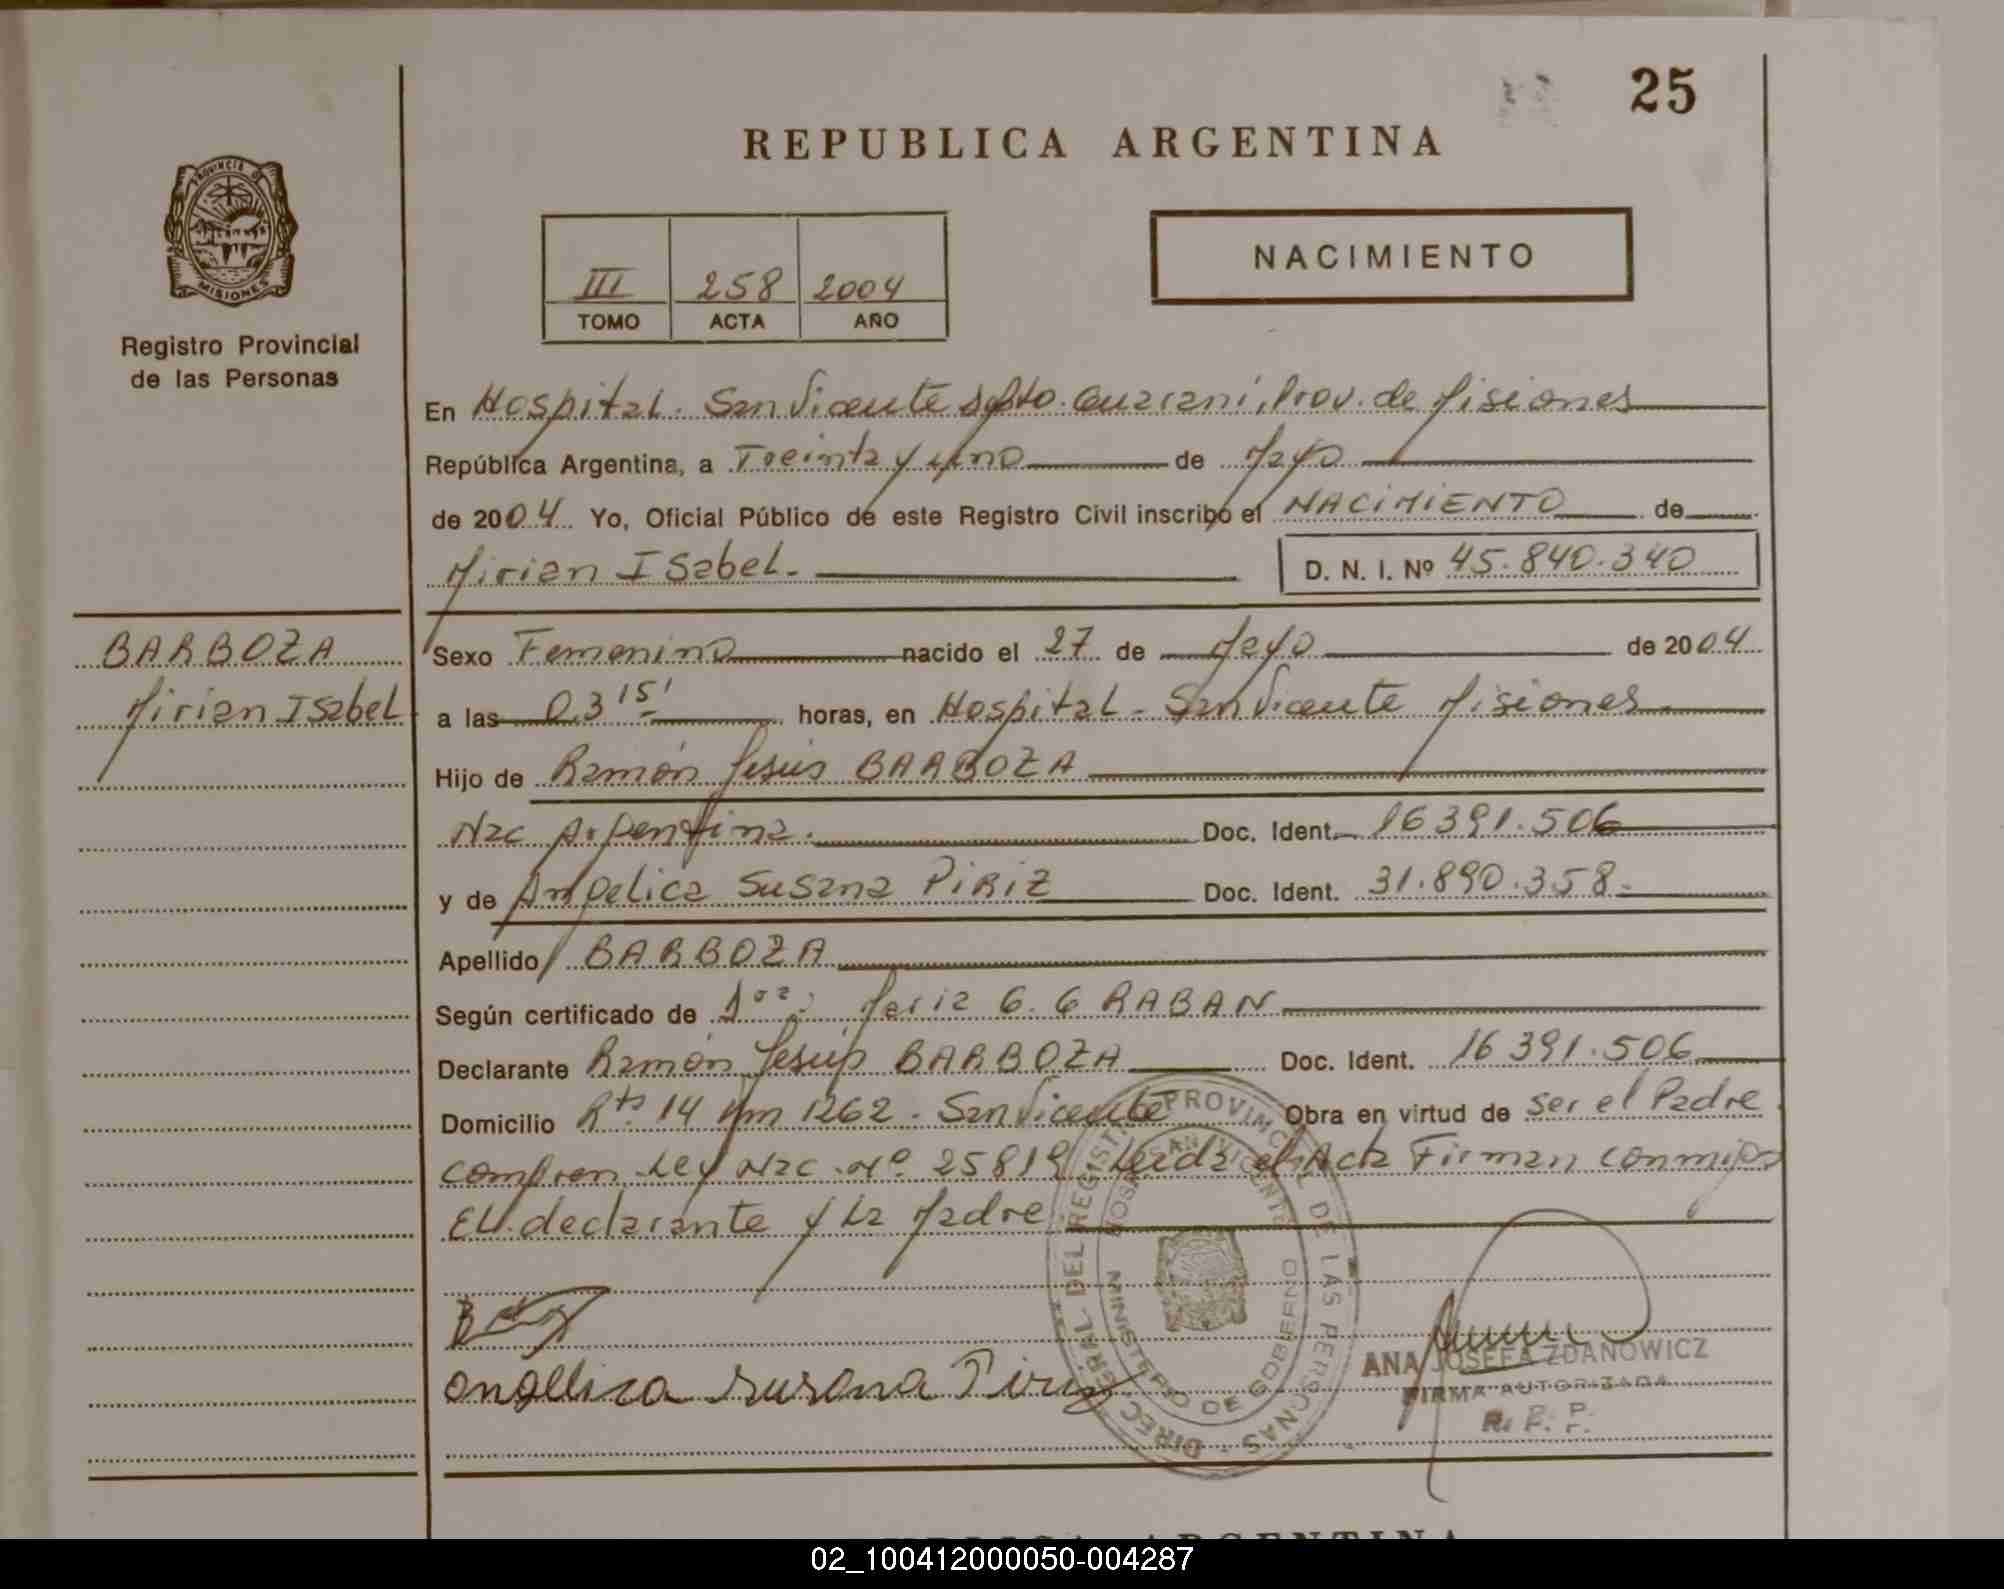 25
REPUBLICA ARGENTINA
PROVINCIA D
MISIONES
Registro Provincial
de las Personas
NACIMIENTO
III 258 2004
TOMO ACTA AÑO
En Hospital. San Vicente Dpto. Guarani, Prov. de Misiones
República Argentina, a Treinta y uno de Mayo
de 2004 Yo, Oficial Público de este Registro Civil inscribo el NACIMIENTO de
Mirian Isabel. D. N. I. Nº 45.840.340
BARBOZA
Mirian Isabel
Sexo Femenino nacido el 27 de Mayo de 2004
a las 03 15' horas, en Hospital - San Vicente Misiones
Hijo de Ramón Jesús BARBOZA
Nac Argentina. Doc. Ident. 16391.506
y de Angelica Susana PIRIZ Doc. Ident. 31.890.358.
Apellido BARBOZA
Según certificado de Maria G. G RABAN
Declarante Ramón Jesús BARBOZA Doc. Ident. 16391.506
Domicilio Rta 14 Km 1262. San Vicente Obra en virtud de ser el Padre
Ley Nac. Nº 25819 Leida el Acta Firman conmigo
El declarante y la Madre
angelica susana Piriz
DIREC. GRAL. DEL REGISTRO PROVINCIAL DE LAS PERSONAS
HOSP. SAN VICENTE
MINISTERIO DE GOBIERNO
ANA JOSEFA ZDANOWICZ
FIRMA AUTORIZADA
R. P. P.
REPUBLICA ARGENTINA
02_100412000050-004287